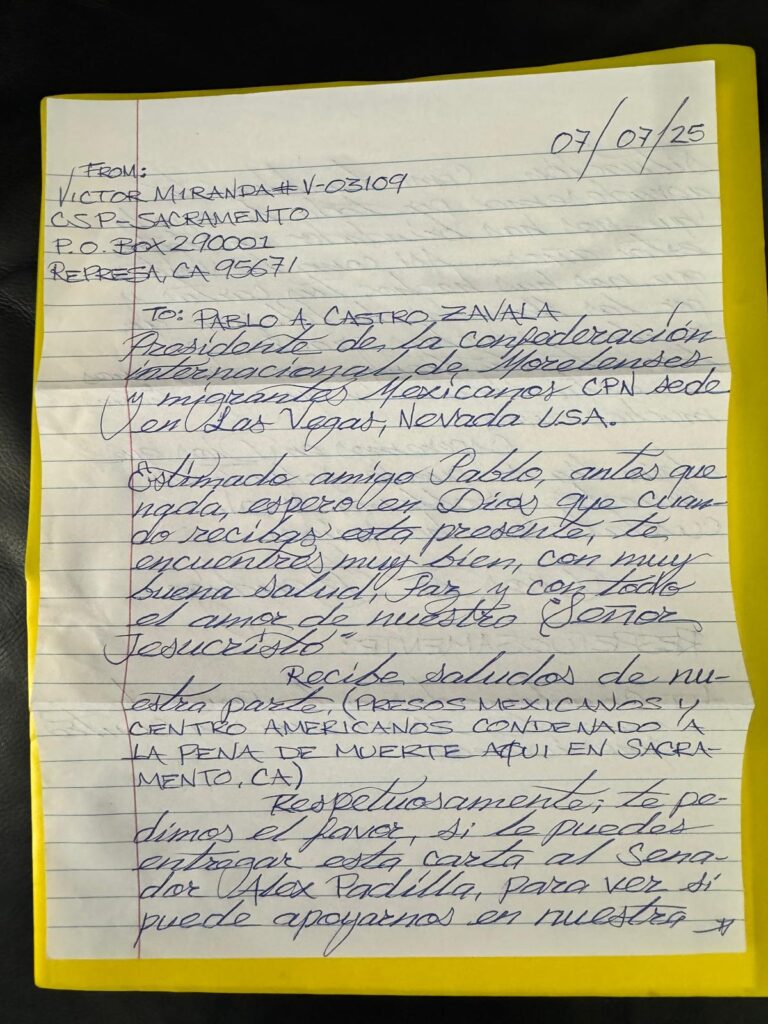 07/07/25
FROM:
VICTOR MIRANDA # V-03109
CSP-SACRAMENTO
P.O. BOX 290001
REPRESA, CA 95671
TO: PABLO A. CASTRO ZAVALA
Presidente de la confederación
internacional de Morelenses
y migrantes Mexicanos CPN sede
en Las Vegas, Nevada USA.
Estimado amigo Pablo, antes que
nada, espero en Dios que cuan-
do recibas esta presente, te
encuentres muy bien, con muy
buena salud, Paz y con todo
el amor de nuestro "Señor
Jesucristo"
Recibe saludos de nu-
estra parte, (PRESOS MEXICANOS Y
CENTRO AMERICANOS CONDENADO A
LA PENA DE MUERTE AQUI EN SACRA-
MENTO, CA)
Respetuosamente; te pe-
dimos el favor, si le puedes
entragar esta carta al Sena-
dor Alex Padilla, para ver si
puede apoyarnos en nuestra